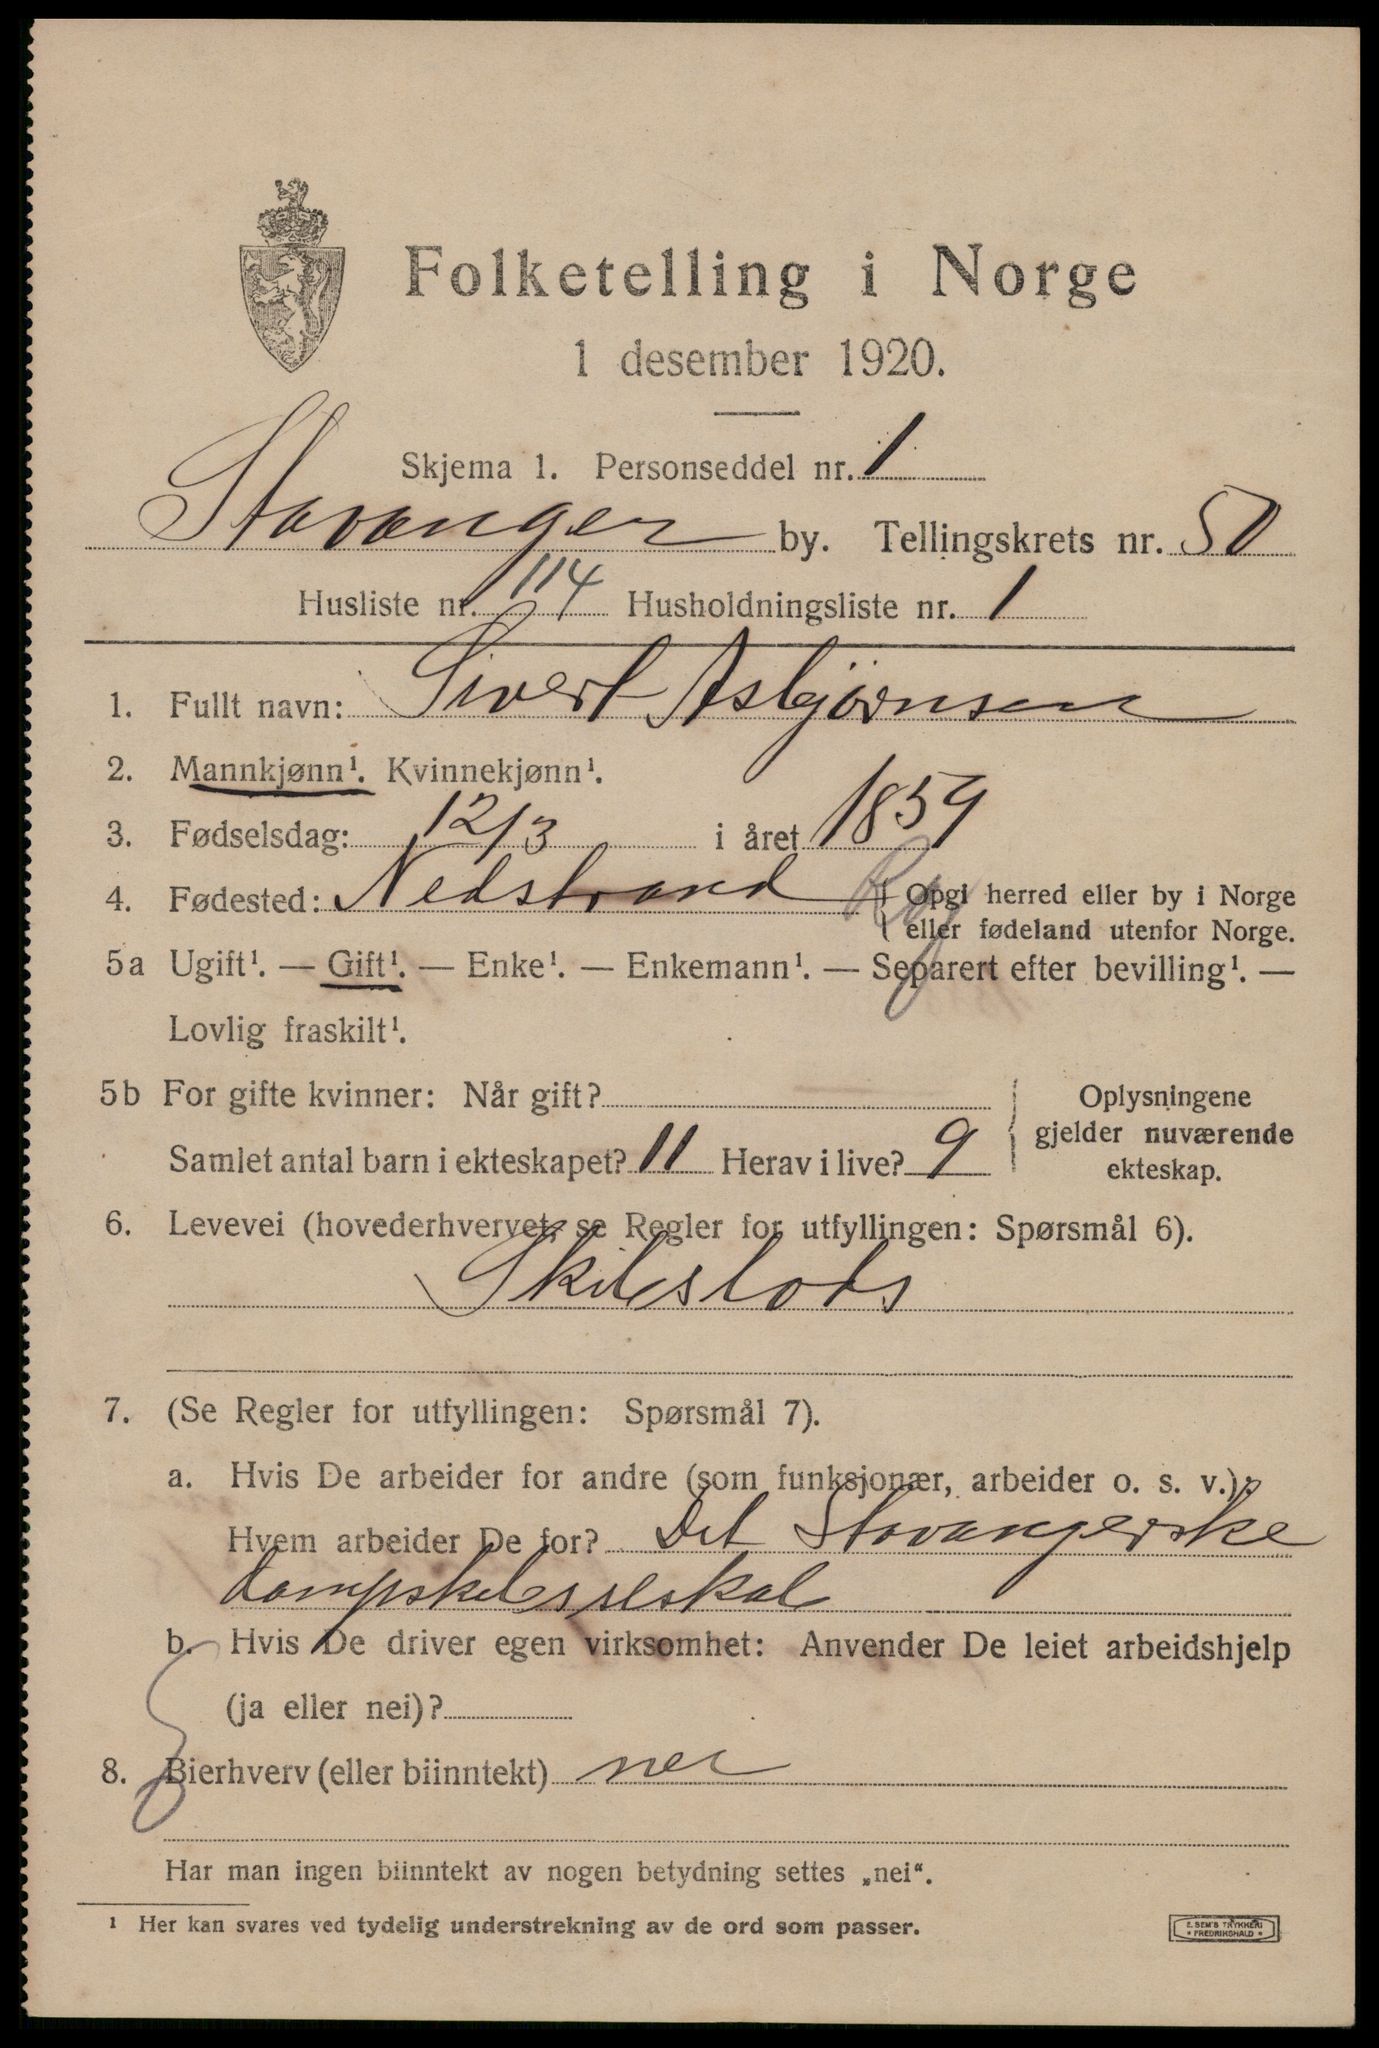 Folketelling i Norge
1 desember 1920.
Skjema 1. Personseddel nr. 1
Stavanger by. Tellingskrets nr. 50
Husliste nr. 114 Husholdningsliste nr. 1
1. Fullt navn: Sivert Asbjørnsen
2. Mannkjønn¹. Kvinnekjønn¹.
3. Fødselsdag: 12/3 i året 1859
4. Fødested: Nedstrand Rog { Opgi herred eller by i Norge
eller fødeland utenfor Norge.
5a Ugift¹. — Gift¹. — Enke¹. — Enkemann¹. — Separert efter bevilling¹. —
Lovlig fraskilt¹.
5b For gifte kvinner: Når gift?
Samlet antal barn i ekteskapet? 11 Herav i live? 9
Oplysningene
gjelder nuværende
ekteskap.
6. Levevei (hovederhvervet, se Regler for utfyllingen: Spørsmål 6).
Skibslods
7. (Se Regler for utfyllingen: Spørsmål 7).
a. Hvis De arbeider for andre (som funksjonær, arbeider o. s. v.):
Hvem arbeider De for? Det Stavangerske
b. Hvis De driver egen virksomhet: Anvender De leiet arbeidshjelp
(ja eller nei)?
8. Bierhverv (eller biinntekt) nei
Har man ingen biinntekt av nogen betydning settes „nei“.
1 Her kan svares ved tydelig understrekning av de ord som passer.
E. SEM'S TRYKKERI
* FREDRIKSHALD *